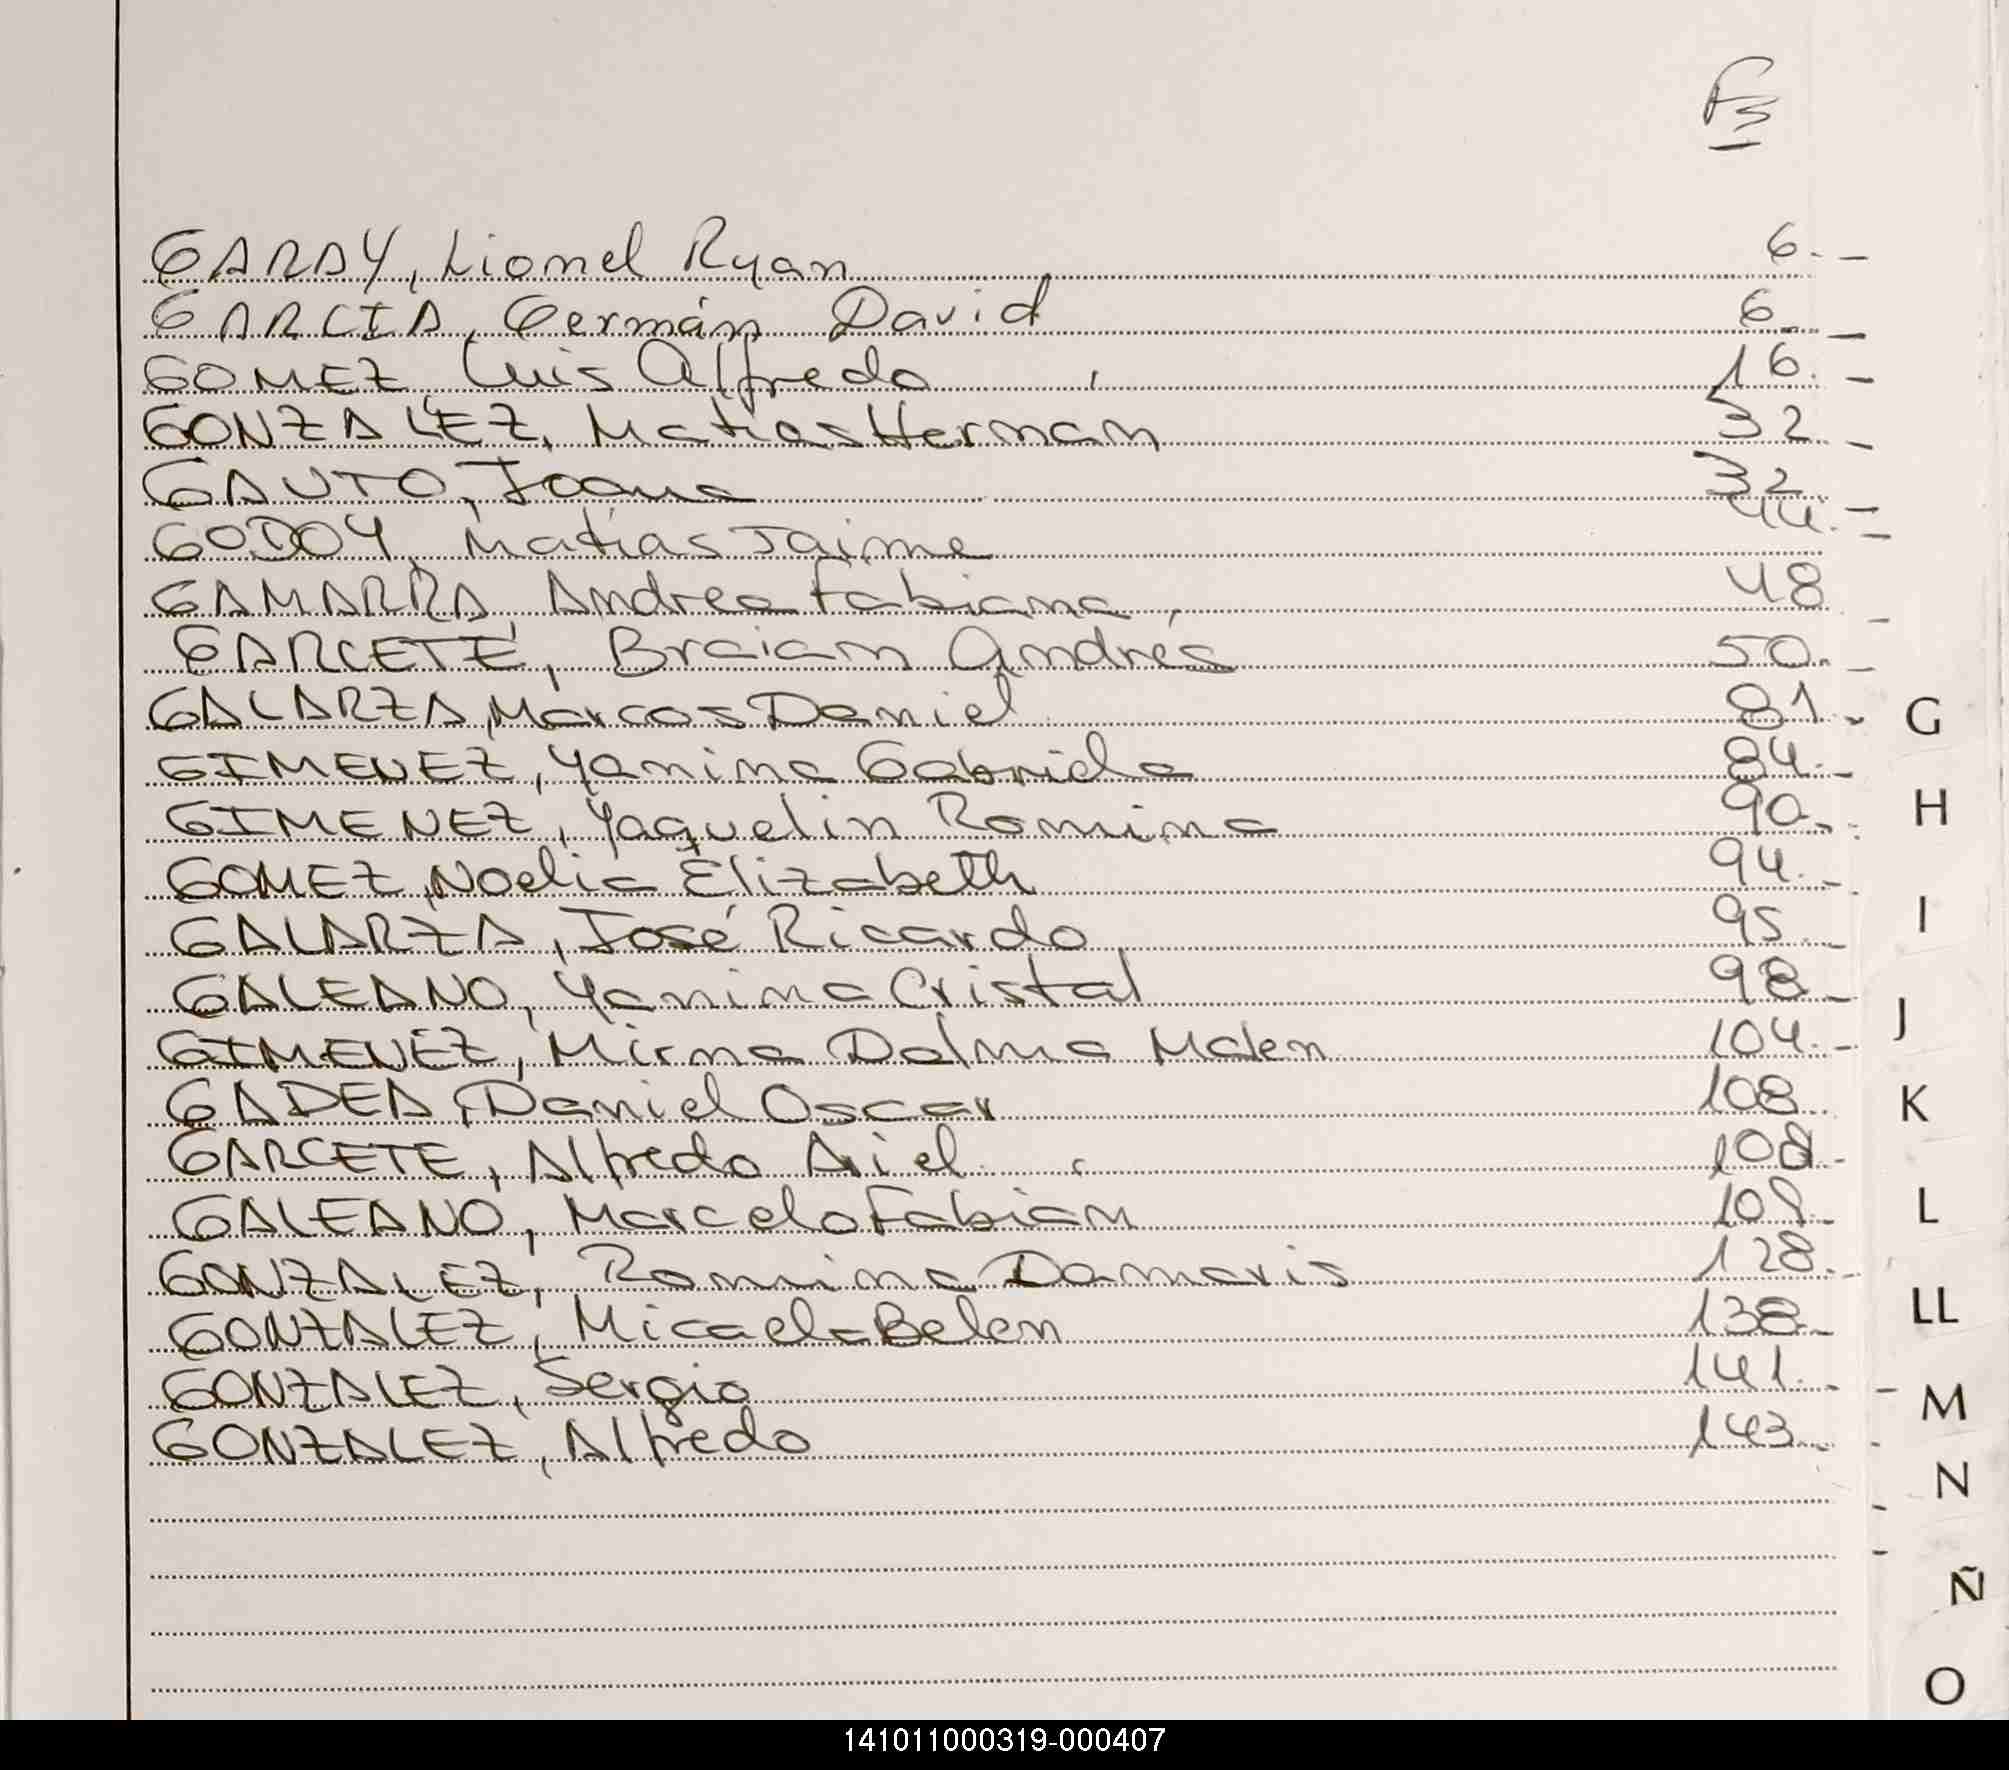 Fs
GARAY, Lionel Ryan 6.-
GARCIA, Germán David 6.-
GOMEZ Luis Alfredo 16.-
GONZALEZ, Matias Hernan 32.-
GAUTO, Joana 32.-
GODOY, Matias Jaime 44.-
GAMARRA, Andrea Fabiana, 48
GARCETE, Braian Andrés 50.-
GALARZA, Marcos Daniel 81.-
GIMENEZ, Yanina Gabriela 84.-
GIMENEZ, Yaquelin Romina 90.-
GOMEZ, Noelia Elizabeth 94.-
GALARZA, José Ricardo 95.-
GALEANO, Yanina Cristal 98.-
GIMENEZ, Mirna Dalma Malen 104.-
GADEA, Daniel Oscar 108.
GARCETE, Alfredo Ariel 108.-
GALEANO, Marcelo Fabian 108.-
GONZALEZ, Romina Damaris 128.-
GONZALEZ, Micaela Belen 138.-
GONZALEZ, Sergio 141.-
GONZALEZ, Alfredo 143.-
G
H
I
J
K
L
LL
M
N
Ñ
O
141011000319-000407